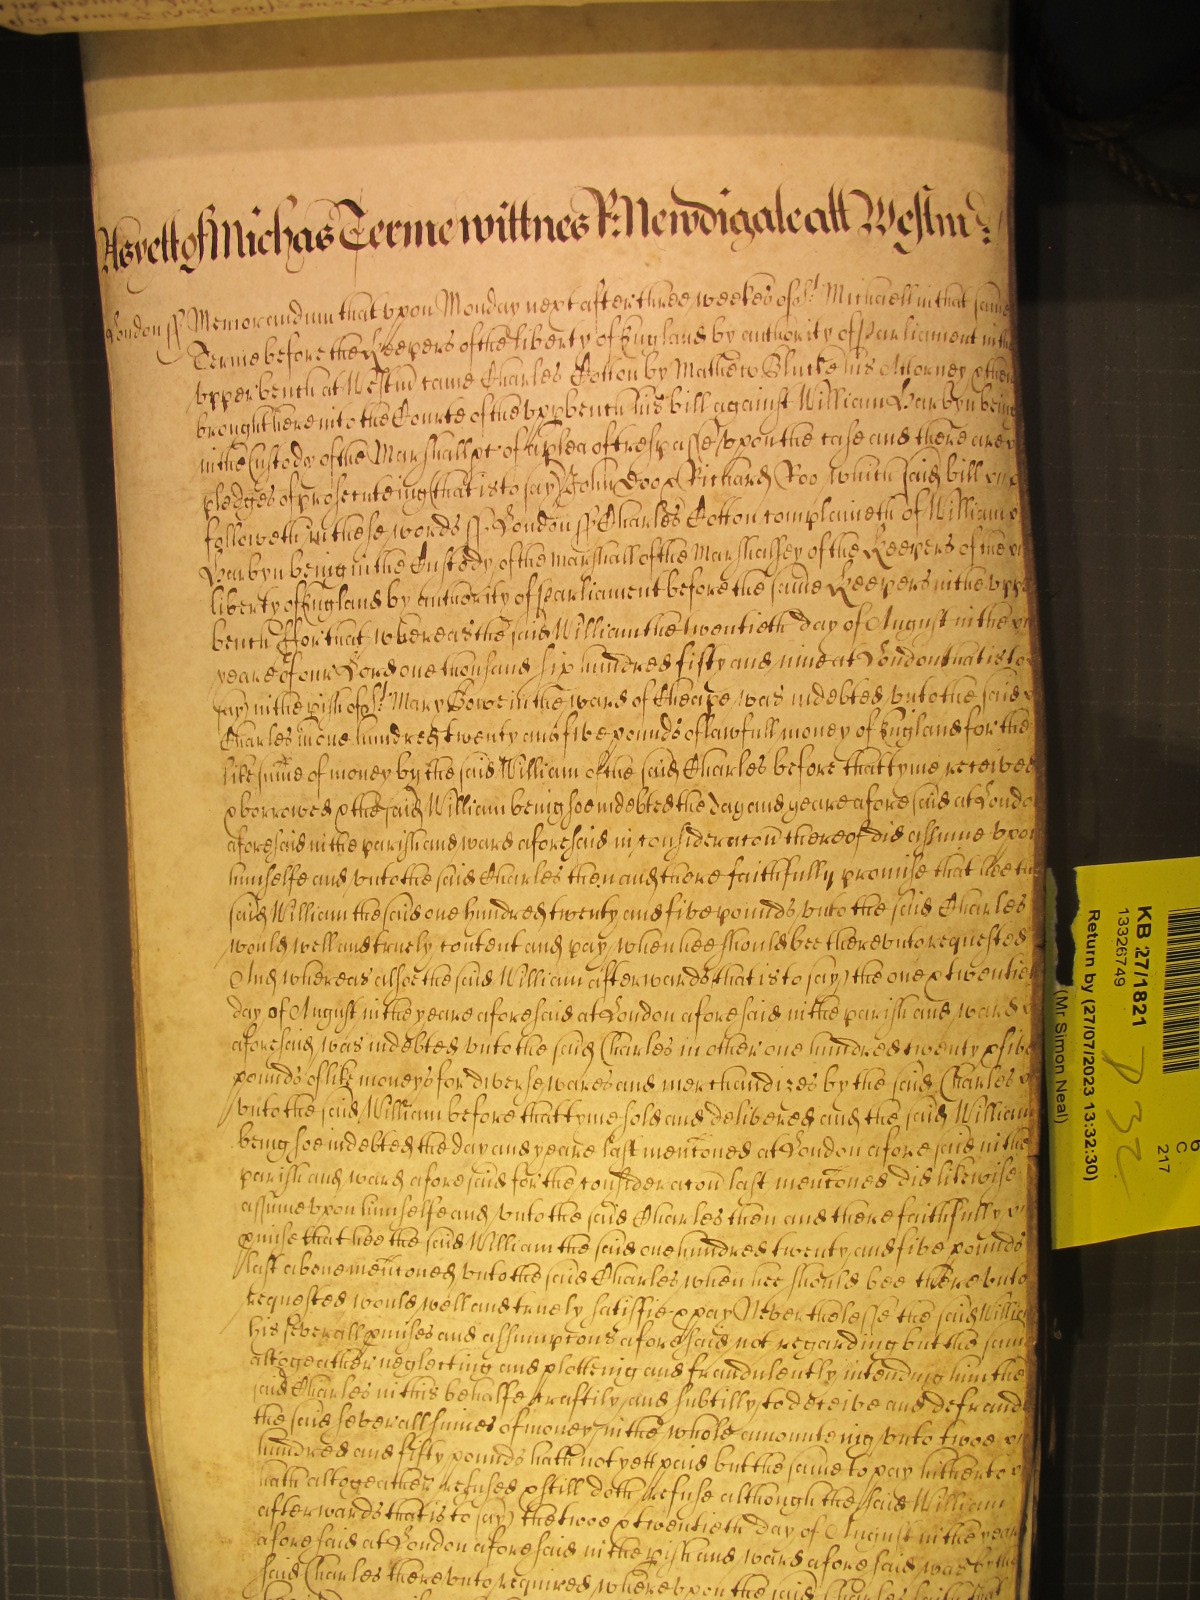 As yett of Michas Terme wittnes R: Newdigate att Westmr
London ss Memorandum that upon Monday next after three weekes of St Michaell in that same
Terme before the Keepers of the liberty of England by authority of Parliament in the
upper bench at Westmr came Charles Cotton by Mathew Blucke his Attorney & then
brought here into the Courte of the upp bench his bill against William Barbyn being
in the Custody of the Marshall &c of a plea of trespasse upon the case and there are
pledges of prosecuteing (that is to say) John Doo & Richard Roo which said bill
followeth in these words ss London ss Charles Cotton complaineth of William
Barbyn being in the Custody of the Marshall of the Marshalsey of the Keepers of the
liberty of England by authority of Parliament before the same Keepers in the upp
bench Ffor that whereas the said William the twentieth day of August in the
yeare of our Lord one thousand six hundred fifty and nine at London that is to
say in the pish of St Mary Bowe in the ward of Cheape was indebted unto the said
Charles in one hundred twenty and five pounds of lawfull money of England for the
like sume of money by the said William of the said Charles before that tyme received
& borrowed & the said William being soe indebted the day and yeare aforesaid at Londo
aforesaid in the parish and ward aforesaid in consideracon thereof did assume upon
himselfe and unto the said Charles then and there faithfully promise that hee the
said William the said one hundred twenty and five pounds unto the said Charles
would well and truely content and pay when hee should bee thereunto requested
And whereas allsoe the said William afterwards that is to say) the one & twentie
day of August in the yeare aforesaid at London aforesaid in the parish and ward
aforesaid was indebted unto the said Charles in other one hundred twenty & five
pounds of like moneys for diverse wares and merchandizes by the said Charles
unto the said William before that tyme sold and delivered and the said William
being soe indebted the day and yeare last menconed at London aforesaid in the
parish and ward aforesaid for the consideracon last menconed did likewise
assume upon himselfe and unto the said Charles then and there faithfully
pmise that hee the said William the said one hundred twenty and five pounds
last abovemenconed unto the said Charles when hee should bee thereunto
requested would well and truely satisfie & pay Neverthelesse the said Willia
his severall pmises and assumpcons aforesaid not regarding but the same
altogeather neglecting and plotteing and fraudulently intending him the
said Charles in this behalfe craftily and subtilly to deceive and defraud
the said severall sumes of money in the whole amounteing unto twoe
hundred and fifty pounds hath not yett paid but the same to pay hitherto
hath altogeather refused & still doth refuse although the said William
afterwards that is to say) the twoe & twentieth day of August in the yeare
aforesaid at London aforesaid in the pish and ward aforesaid was by the
said Charles thereunto required whereupon the said Charles saith that
KB 27/1821
13326749
Return by (27/07/2023 13:32:30)
(Mr Simon Neal)
C
217